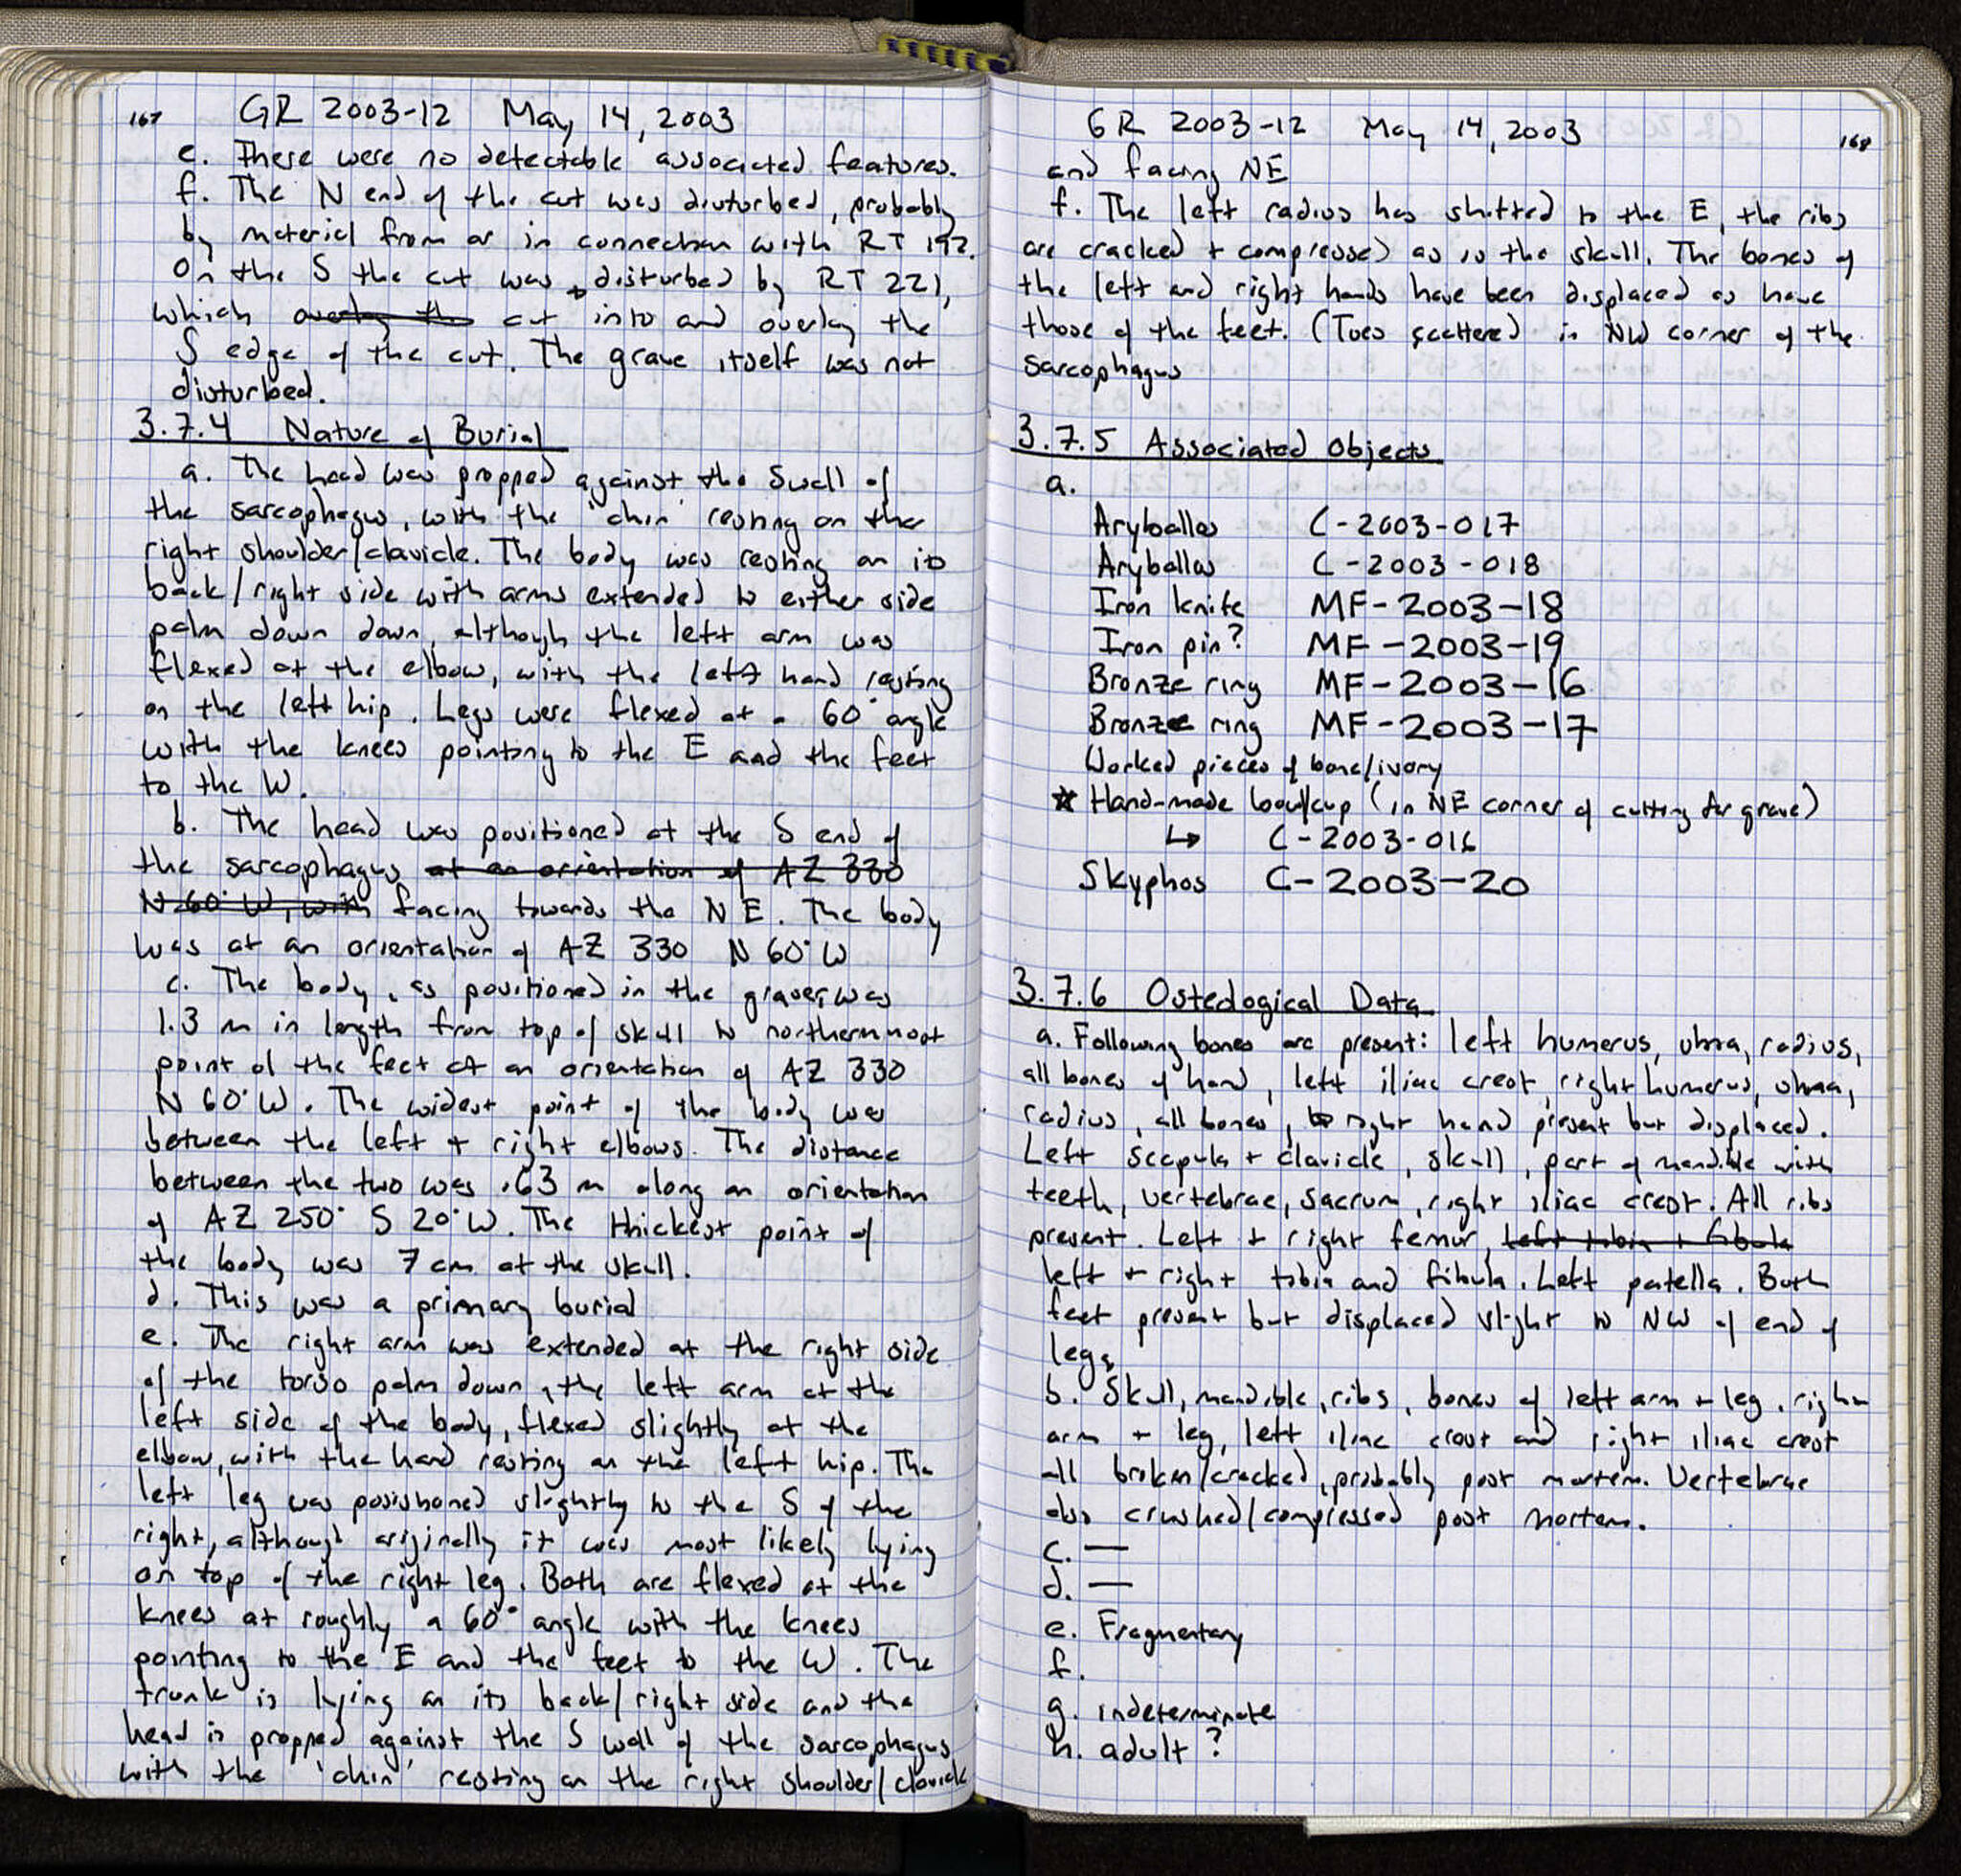 167 GR 2003-12 May 14, 2003
e. There were no detectable associated features.
f. The N end of the cut was disturbed, probably
by material from or in connection with RT 192.
On the S the cut was disturbed by RT 221,
which overlay the cut into and overlay the
S edge of the cut. The grave itself was not
disturbed.
3.7.4 Nature of Burial
a. The head was propped against the S wall of
the sarcophagus, with the 'chin' resting on the
right shoulder/clavicle. The body was resting on its
back/right side with arms extended to either side
palm down down, although the left arm was
flexed at the elbow, with the left hand resting
on the left hip. Legs were flexed at a 60° angle
with the knees pointing to the E and the feet
to the W.
b. The head was positioned at the S end of
the sarcophagus at an orientation of AZ 330
N 60° W, with facing towards the NE. The body
was at an orientation of AZ 330 N 60° W
c. The body, as positioned in the grave, was
1.3 m in length from top of skull to northernmost
point of the feet at an orientation of AZ 330
N 60° W. The widest point of the body was
between the left + right elbows. The distance
between the two was .63 m along an orientation
of AZ 250° S 20° W. The thickest point of
the body was 7 cm at the skull.
d. This was a primary burial
e. The right arm was extended at the right side
of the torso palm down, the left arm at the
left side of the body, flexed slightly at the
elbow, with the hand resting on the left hip. The
left leg was positioned slightly to the S of the
right, although originally it was most likely lying
on top of the right leg. Both are flexed at the
knees at roughly a 60° angle with the knees
pointing to the E and the feet to the W. The
trunk is lying on its back/right side and the
head is propped against the S wall of the sarcophagus
with the 'chin' resting on the right shoulder/clavicle
GR 2003-12 May 14, 2003 168
and facing NE
f. The left radius has shifted to the E, the ribs
are cracked + compressed as is the skull. The bones of
the left and right hands have been displaced as have
those of the feet. (Toes scattered) in NW corner of the
sarcophagus
3.7.5 Associated Objects
a.
Aryballos C-2003-017
Aryballos C-2003-018
Iron knife MF-2003-18
Iron pin? MF-2003-19
Bronze ring MF-2003-16
Bronze ring MF-2003-17
Worked pieces of bone/ivory
* Hand-made bowl/cup (in NE corner of cutting for grave)
↳ C-2003-016
Skyphos C-2003-20
3.7.6 Osteological Data
a. Following bones are present: left humerus, ulna, radius,
all bones of hand, left iliac crest, right humerus, ulna,
radius, all bones, right hand present but displaced.
Left scapula + clavicle, skull, part of mandible with
teeth, vertebrae, sacrum, right iliac crest. All ribs
present. Left + right femur, left tibia + fibula
left + right tibia and fibula. Left patella. Both
feet present but displaced slight to NW of end of
legs
b. Skull, mandible, ribs, bones of left arm + leg, right
arm + leg, left iliac crest and right iliac crest
all broken/cracked, probably post mortem. Vertebrae
also crushed/compressed post mortem.
c. —
d. —
e. Fragmentary
f.
g. indeterminate
h. adult?